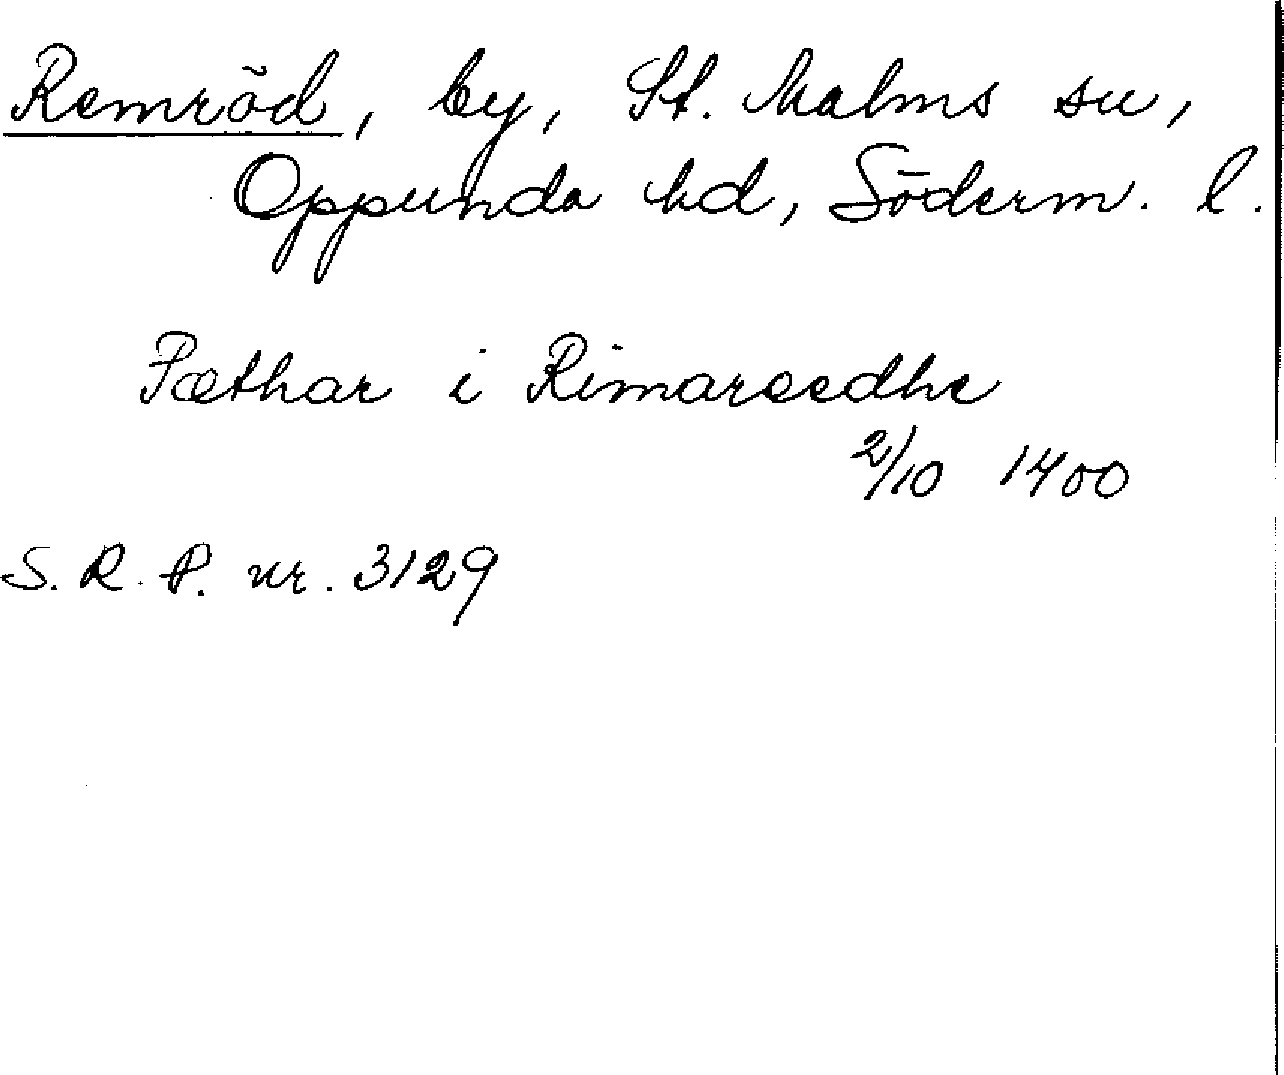 Remröd, by, St. Malms sn,
Oppunda hd, Söderm. l.
Pæthar i Rimarøedhe
2/10 1400
S. R. P. nr. 3129